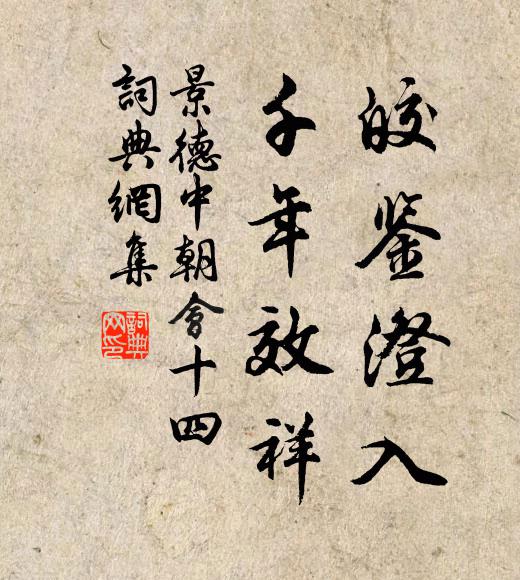 皎鉴澄入
千年效祥
景德中朝會十四
詞典網集
詞典网印